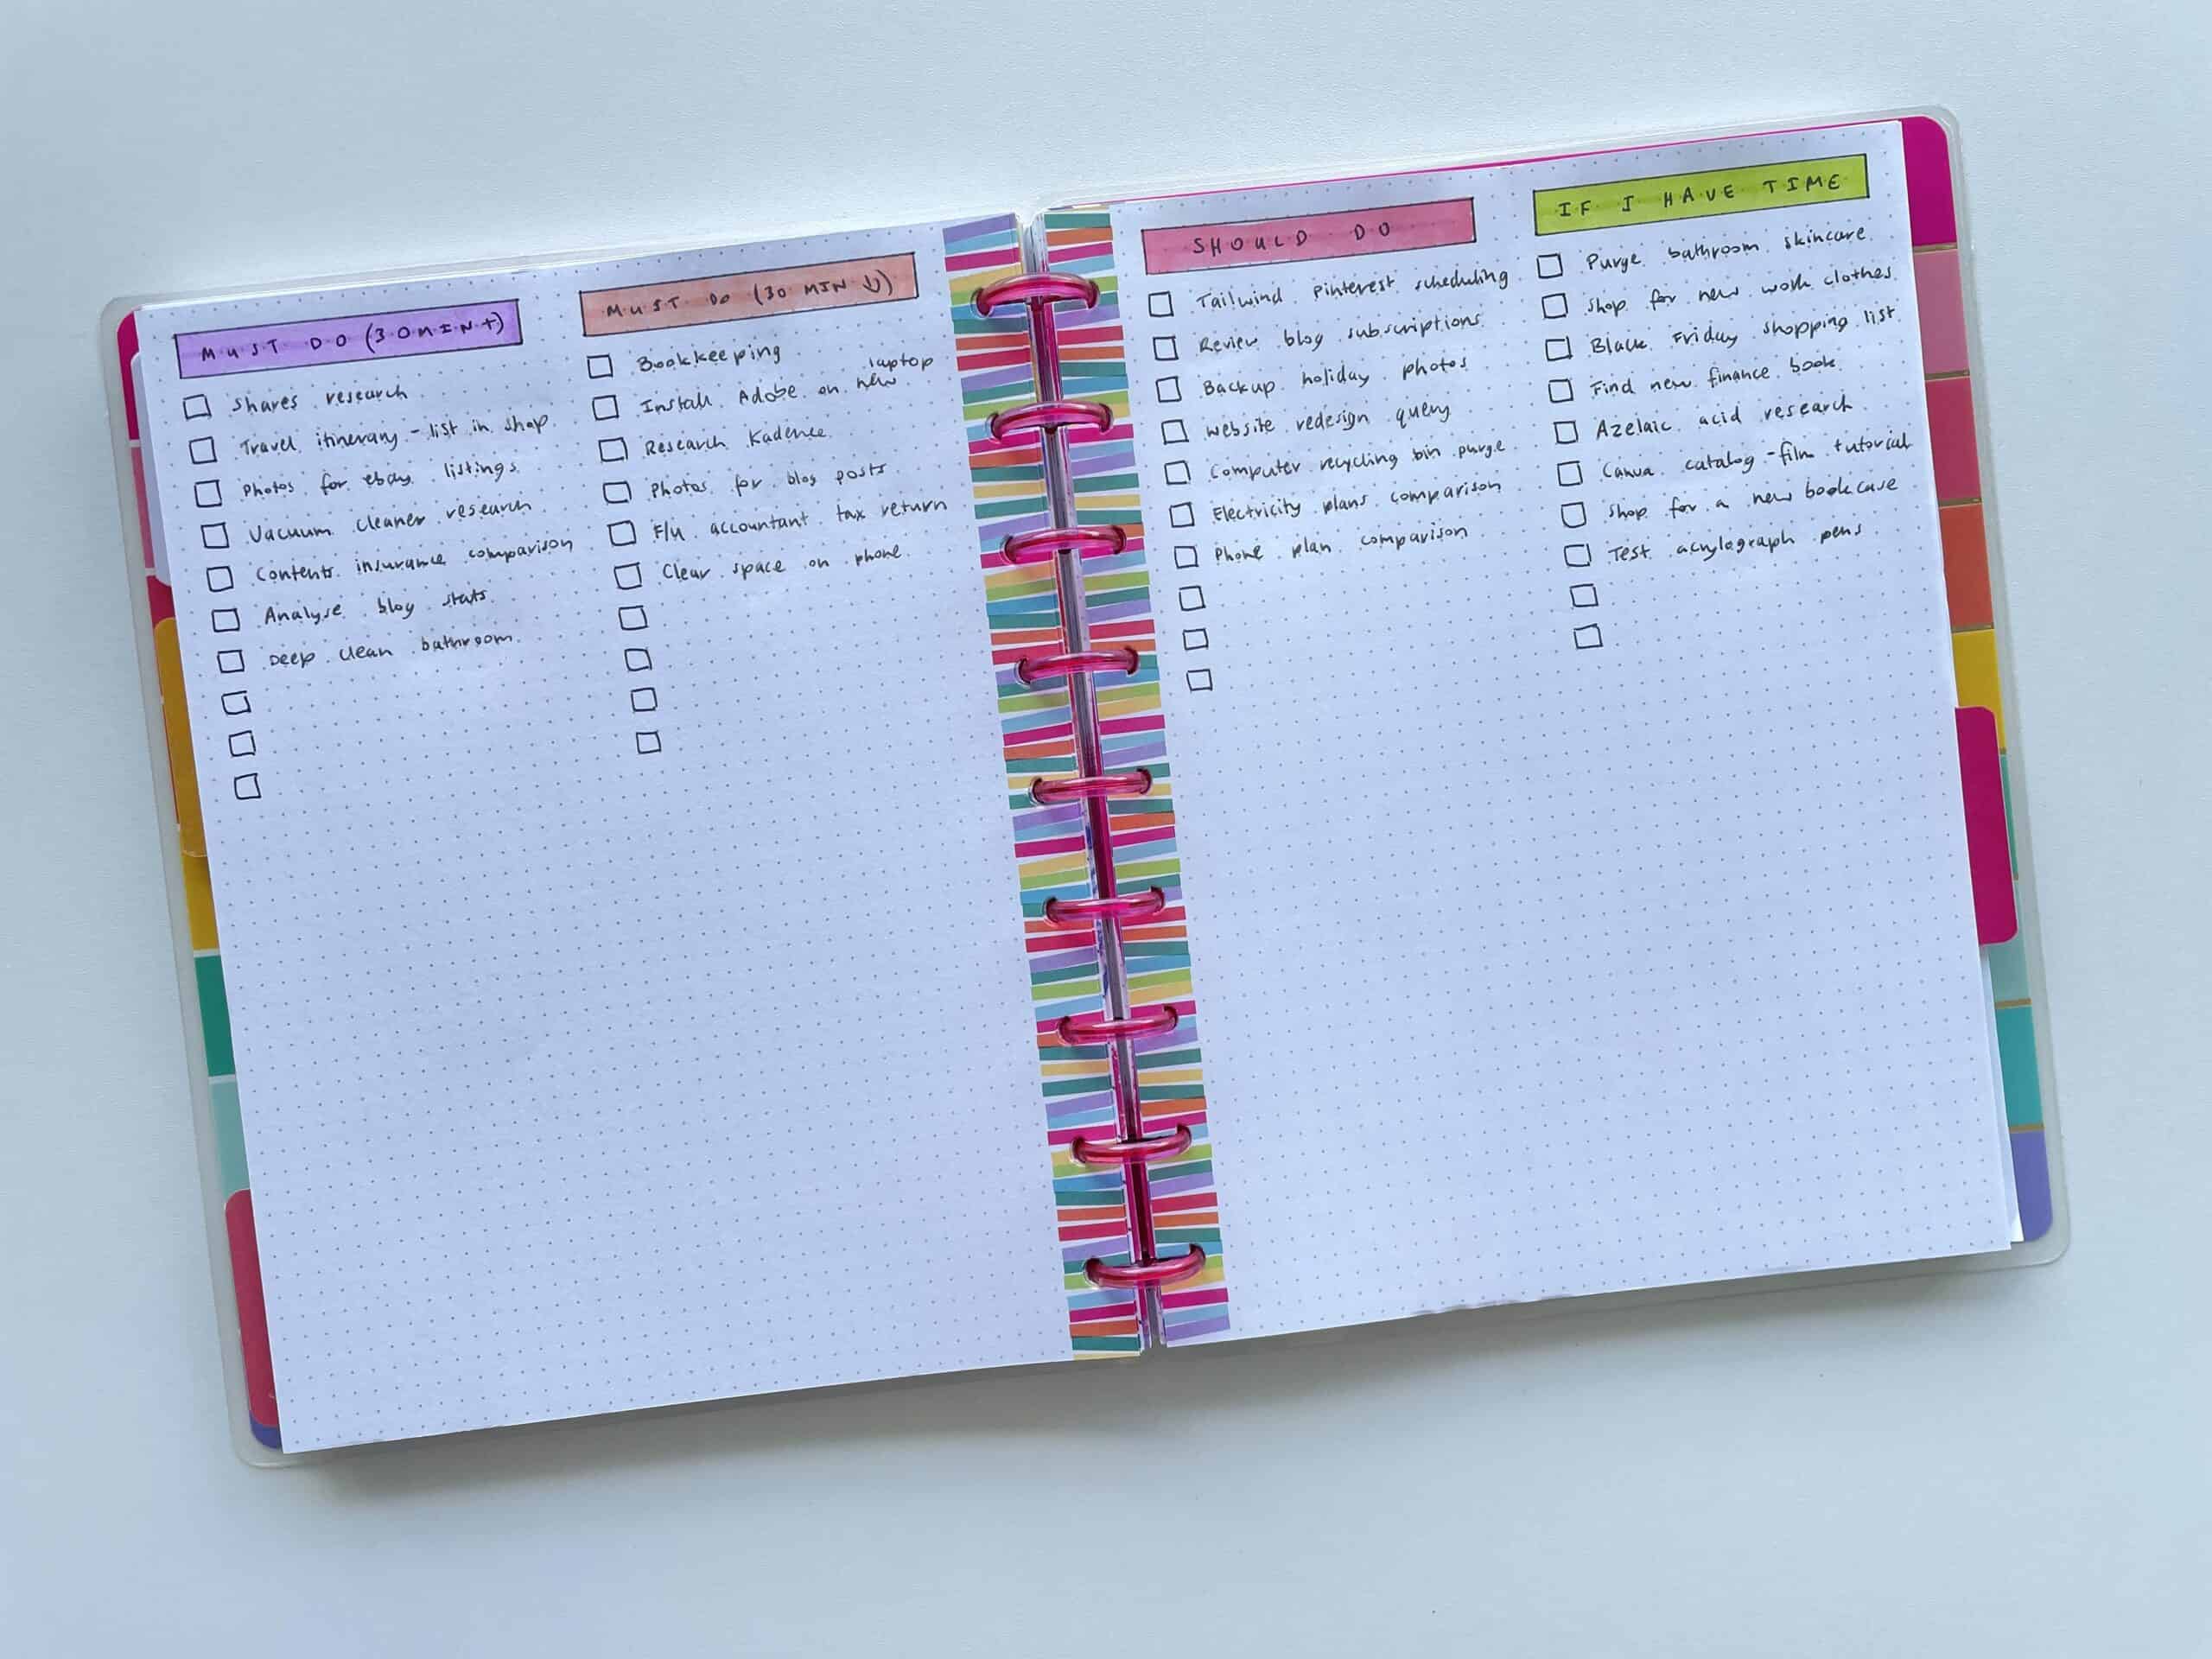 MUST DO (30MIN+)
Shares research
Travel itinerary - list in shop
Photos for ebay listings
Vacuum cleaner research
Contents insurance comparison
Analyse blog stats
Deep clean bathroom
MUST DO (30 MIN ↓)
Bookkeeping
laptop
Install Adobe on new
Research Kadence
Photos for blog posts
F/u accountant tax return
Clear space on phone
SHOULD DO
Tailwind Pinterest scheduling
Review blog subscriptions
Backup holiday photos
Website redesign query
Computer recycling bin purge
Electricity plans comparison
Phone plan comparison
IF I HAVE TIME
Purge bathroom skincare
Shop for new work clothes
Black Friday shopping list
Find new finance book
Azelaic acid research
Canva catalog - film tutorial
Shop for a new bookcase
Test acrylograph pens